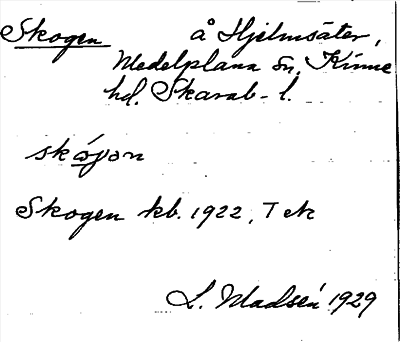 Skogen å Hjelmsäter,
Medelplana sn, Kinne
hd. Skarab-l.
skógən
Skogen kb. 1922, T ek
L. Madsén 1929